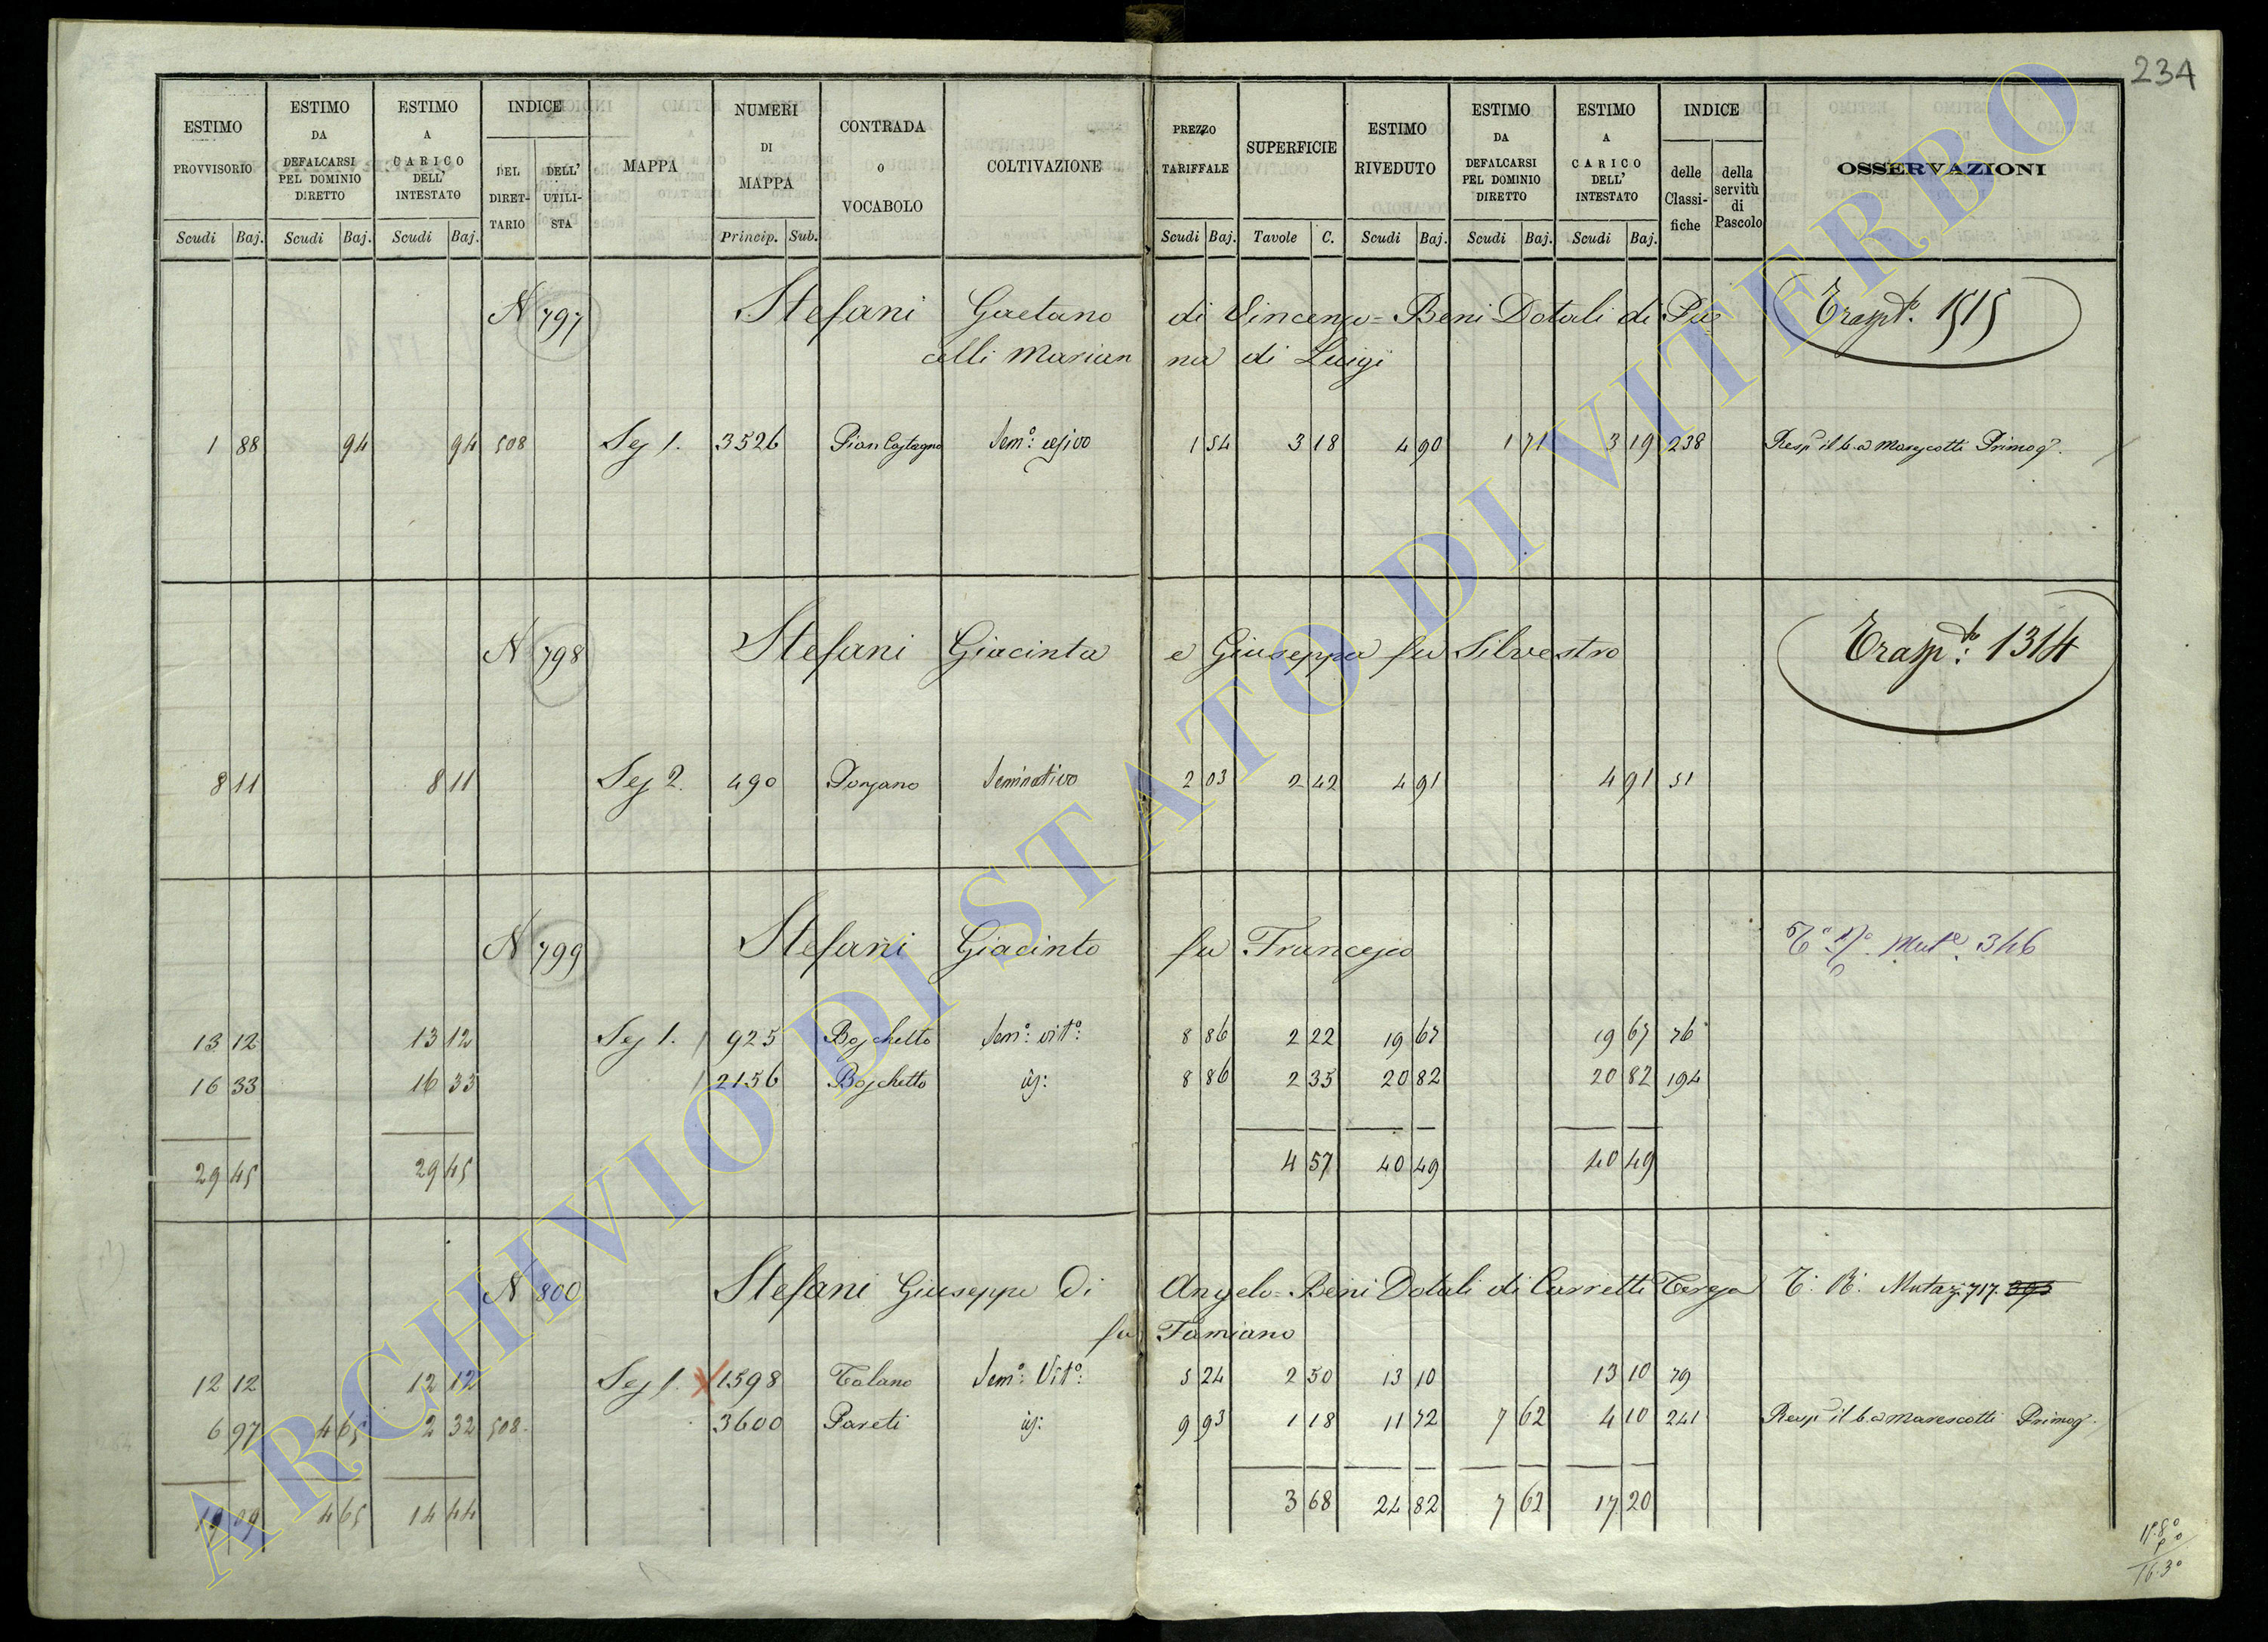 234
ESTIMO PROVVISORIO
ESTIMO DA DEFALCARSI PEL DOMINIO DIRETTO
ESTIMO A CARICO DELL' INTESTATO
INDICE
DEL DIRET-TARIO
DELL' UTILI-STA
MAPPA
NUMERI DI MAPPA
CONTRADA O VOCABOLO
COLTIVAZIONE
PREZZO TARIFFALE
SUPERFICIE
ESTIMO RIVEDUTO
ESTIMO DA DEFALCARSI PEL DOMINIO DIRETTO
ESTIMO A CARICO DELL' INTESTATO
INDICE
delle Classi-fiche
della servitù di Pascolo
OSSERVAZIONI
Scudi Baj. Scudi Baj. Scudi Baj. Princip. Sub. Scudi Baj. Tavole C. Scudi Baj. Scudi Baj. Scudi Baj.
N 797 Stefani Gaetano di Vincenzo = Beni Dotali di Pa Trasp.to 1515
celli Marian na di Luigi
1 88 94 94 508 Sez 1. 3526 Pian Castagno Sem.o: 1 54 3 18 4 90 1 71 3 19 238 Resp il Marescotti Primog.
N 798 Stefani Giacinta e Giuseppa fu Silvestro Trasp.to: 1314
8 11 8 11 Sez 2. 490 Ponzano Seminativo 2 03 2 42 4 91 4 91 51
N 799 Stefani Giacinto fu Francesco Mut.e 346
13 12 13 12 Sez 1. 925 Boschetto Sem.o: vit.o: 8 86 2 22 19 67 19 67 76
16 33 16 33 2156 Boschetto 8 86 2 35 20 82 20 82 194
29 45 29 45 4 57 40 49 40 49
N 800 Stefani Giuseppe Di Angelo = Beni Dotali di Carretti Teresa T. R. Mutaz. 717.
fu Tamiano
12 12 12 12 Sez 1. 1598 Talano Sem.o: Vit.o: 5 24 2 50 13 10 13 10 79
6 97 4 65 2 32 508 3600 Pareti 9 93 1 18 11 72 7 62 4 10 241 Resp il Marescotti Primog.
19 09 4 65 14 44 3 68 24 82 7 62 17 20
ARCHIVIO DI STATO DI VITERBO